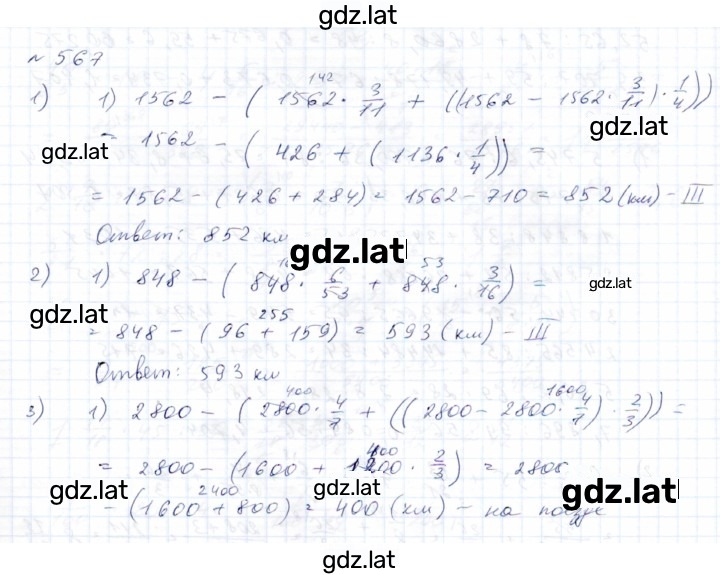 gdz.lat
№ 567
1) 1) 1562 - ( 1562 · 3/11 + ((1562 - 1562 · 3/11) · 1/4)) 142
= 1562 - ( 426 + ( 1136 · 1/4)) =
gdz.lat
gdz.lat
= 1562 - (426 + 284) = 1562 - 710 = 852 (км) - III
Ответ: 852 км
gdz.lat
2) 1) 848 - ( 848 · 6/53 + 848 · 3/16) = 53
gdz.lat
gdz.lat
= 848 - (96 + 159) = 593 (км) - III 255
Ответ: 593 км
3) 1) 2800 - ( 2800 · 4/7 + (( 2800 - 2800 · 4/7) · 2/3)) = 400 1600
= 2800 - (1600 + 1200 · 2/3) = 2800 400
gdz.lat
gdz.lat
gdz.lat
- (1600 + 800) = 400 (км) - на 2400
gdz.lat